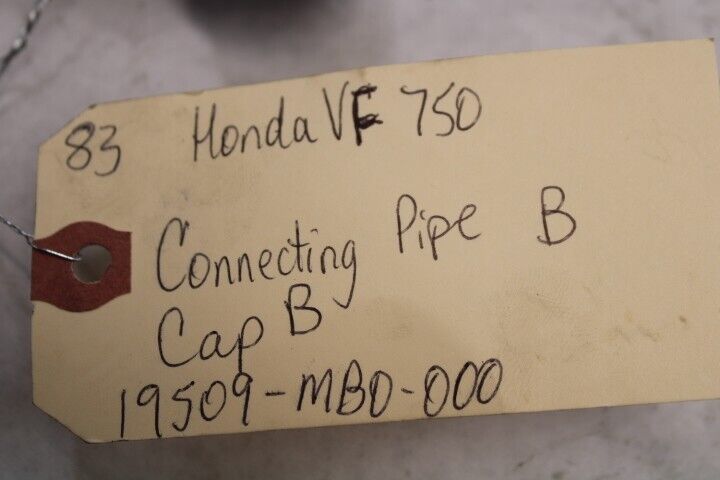 83 Honda VF 750
Connecting Pipe B
Cap B
19509-MB0-000